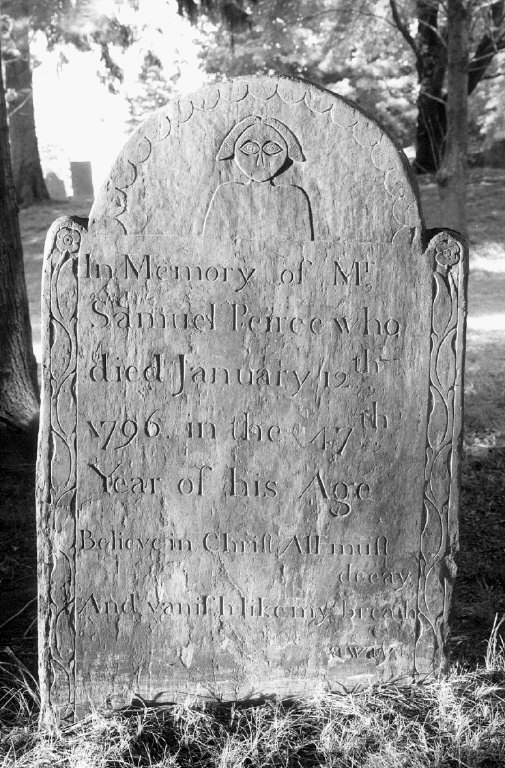 In Memory of Mr.
Samuel Peirce who
died January 12th
1796 in the 47th
Year of his Age
Believe in Chriſt, All muſt
decay
And vaniſh like my breath
away